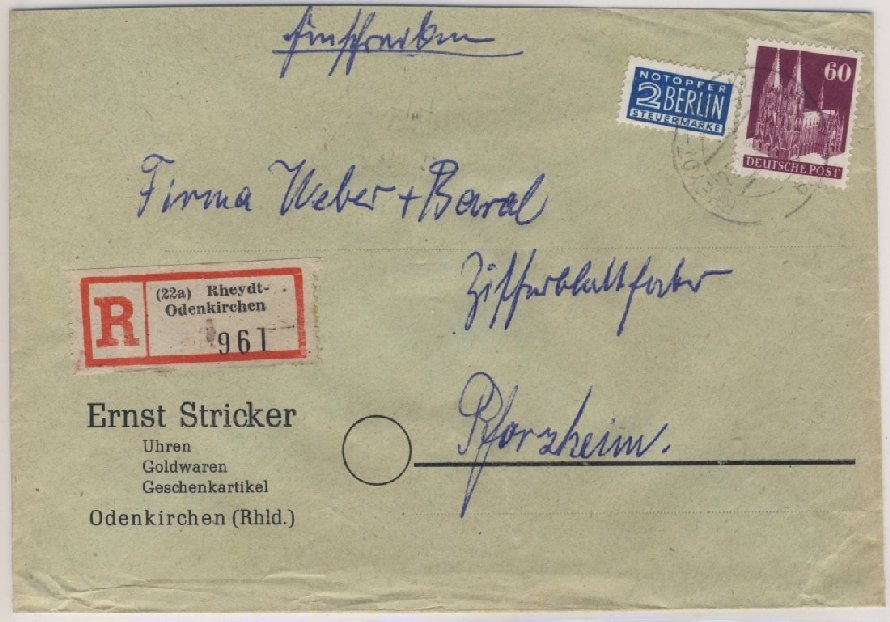 Einschreiben
NOTOPFER
2 BERLIN
STEUERMARKE
60
DEUTSCHE POST
Firma Weber + Baral
Zifferblattfabr
Pforzheim.
R
(22a) Rheydt-
Odenkirchen
961
Ernst Stricker
Uhren
Goldwaren
Geschenkartikel
Odenkirchen (Rhld.)